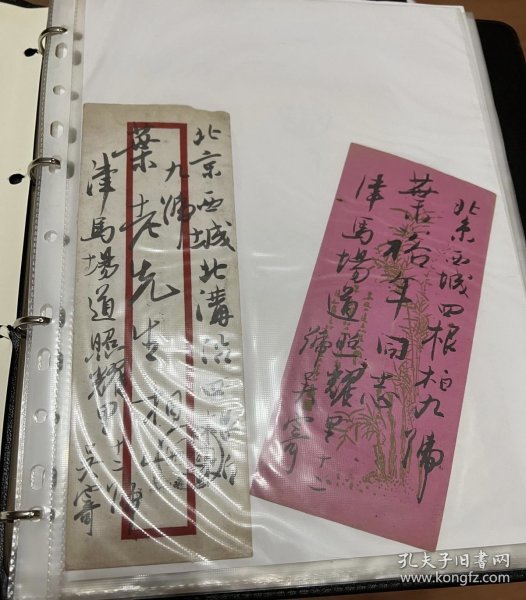 北京西城北溝沿四根柏
九號
葉老先生
津馬場道照耀里十二號
吴寄
北京西城四根柏九號
葉裕年同志
津馬場道照耀里十二
號吴寄
孔夫子旧书网
www.kongfz.com